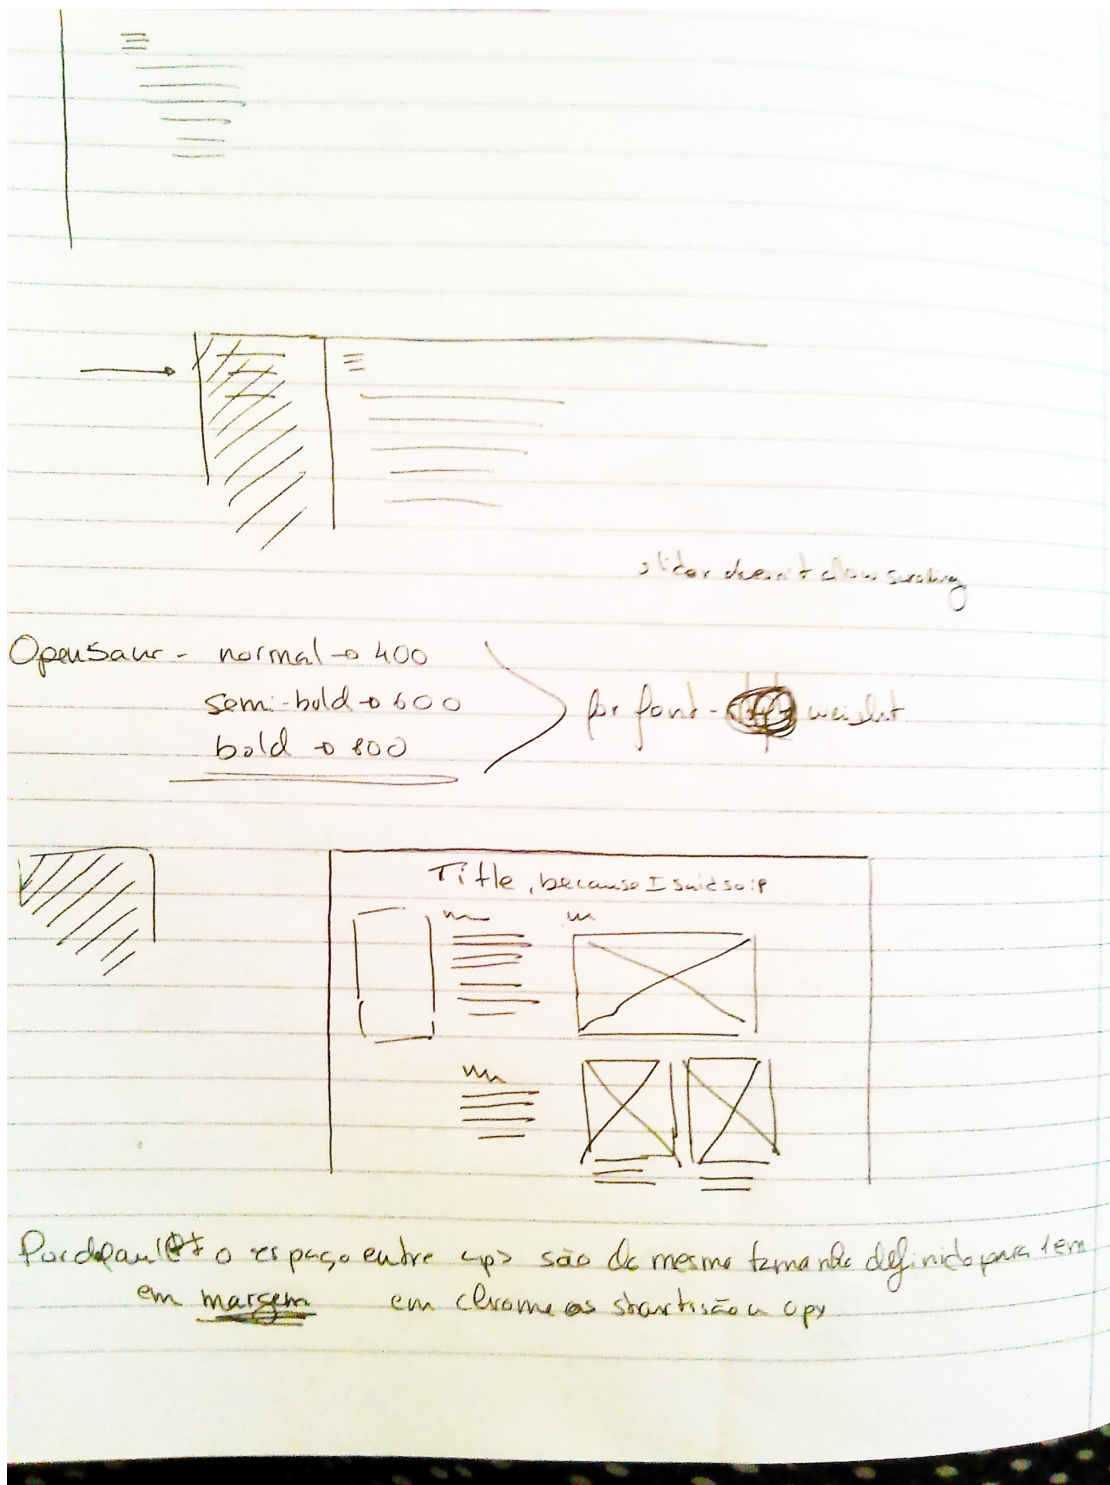 slider doesn't allow scrolling
OpenSans - normal → 400
semi-bold → 600
bold → 800
for font- weight
Title, because I said so :P
Por default o espaço entre <p> são do mesmo tamanho definido para 1em
em margem em chrome as